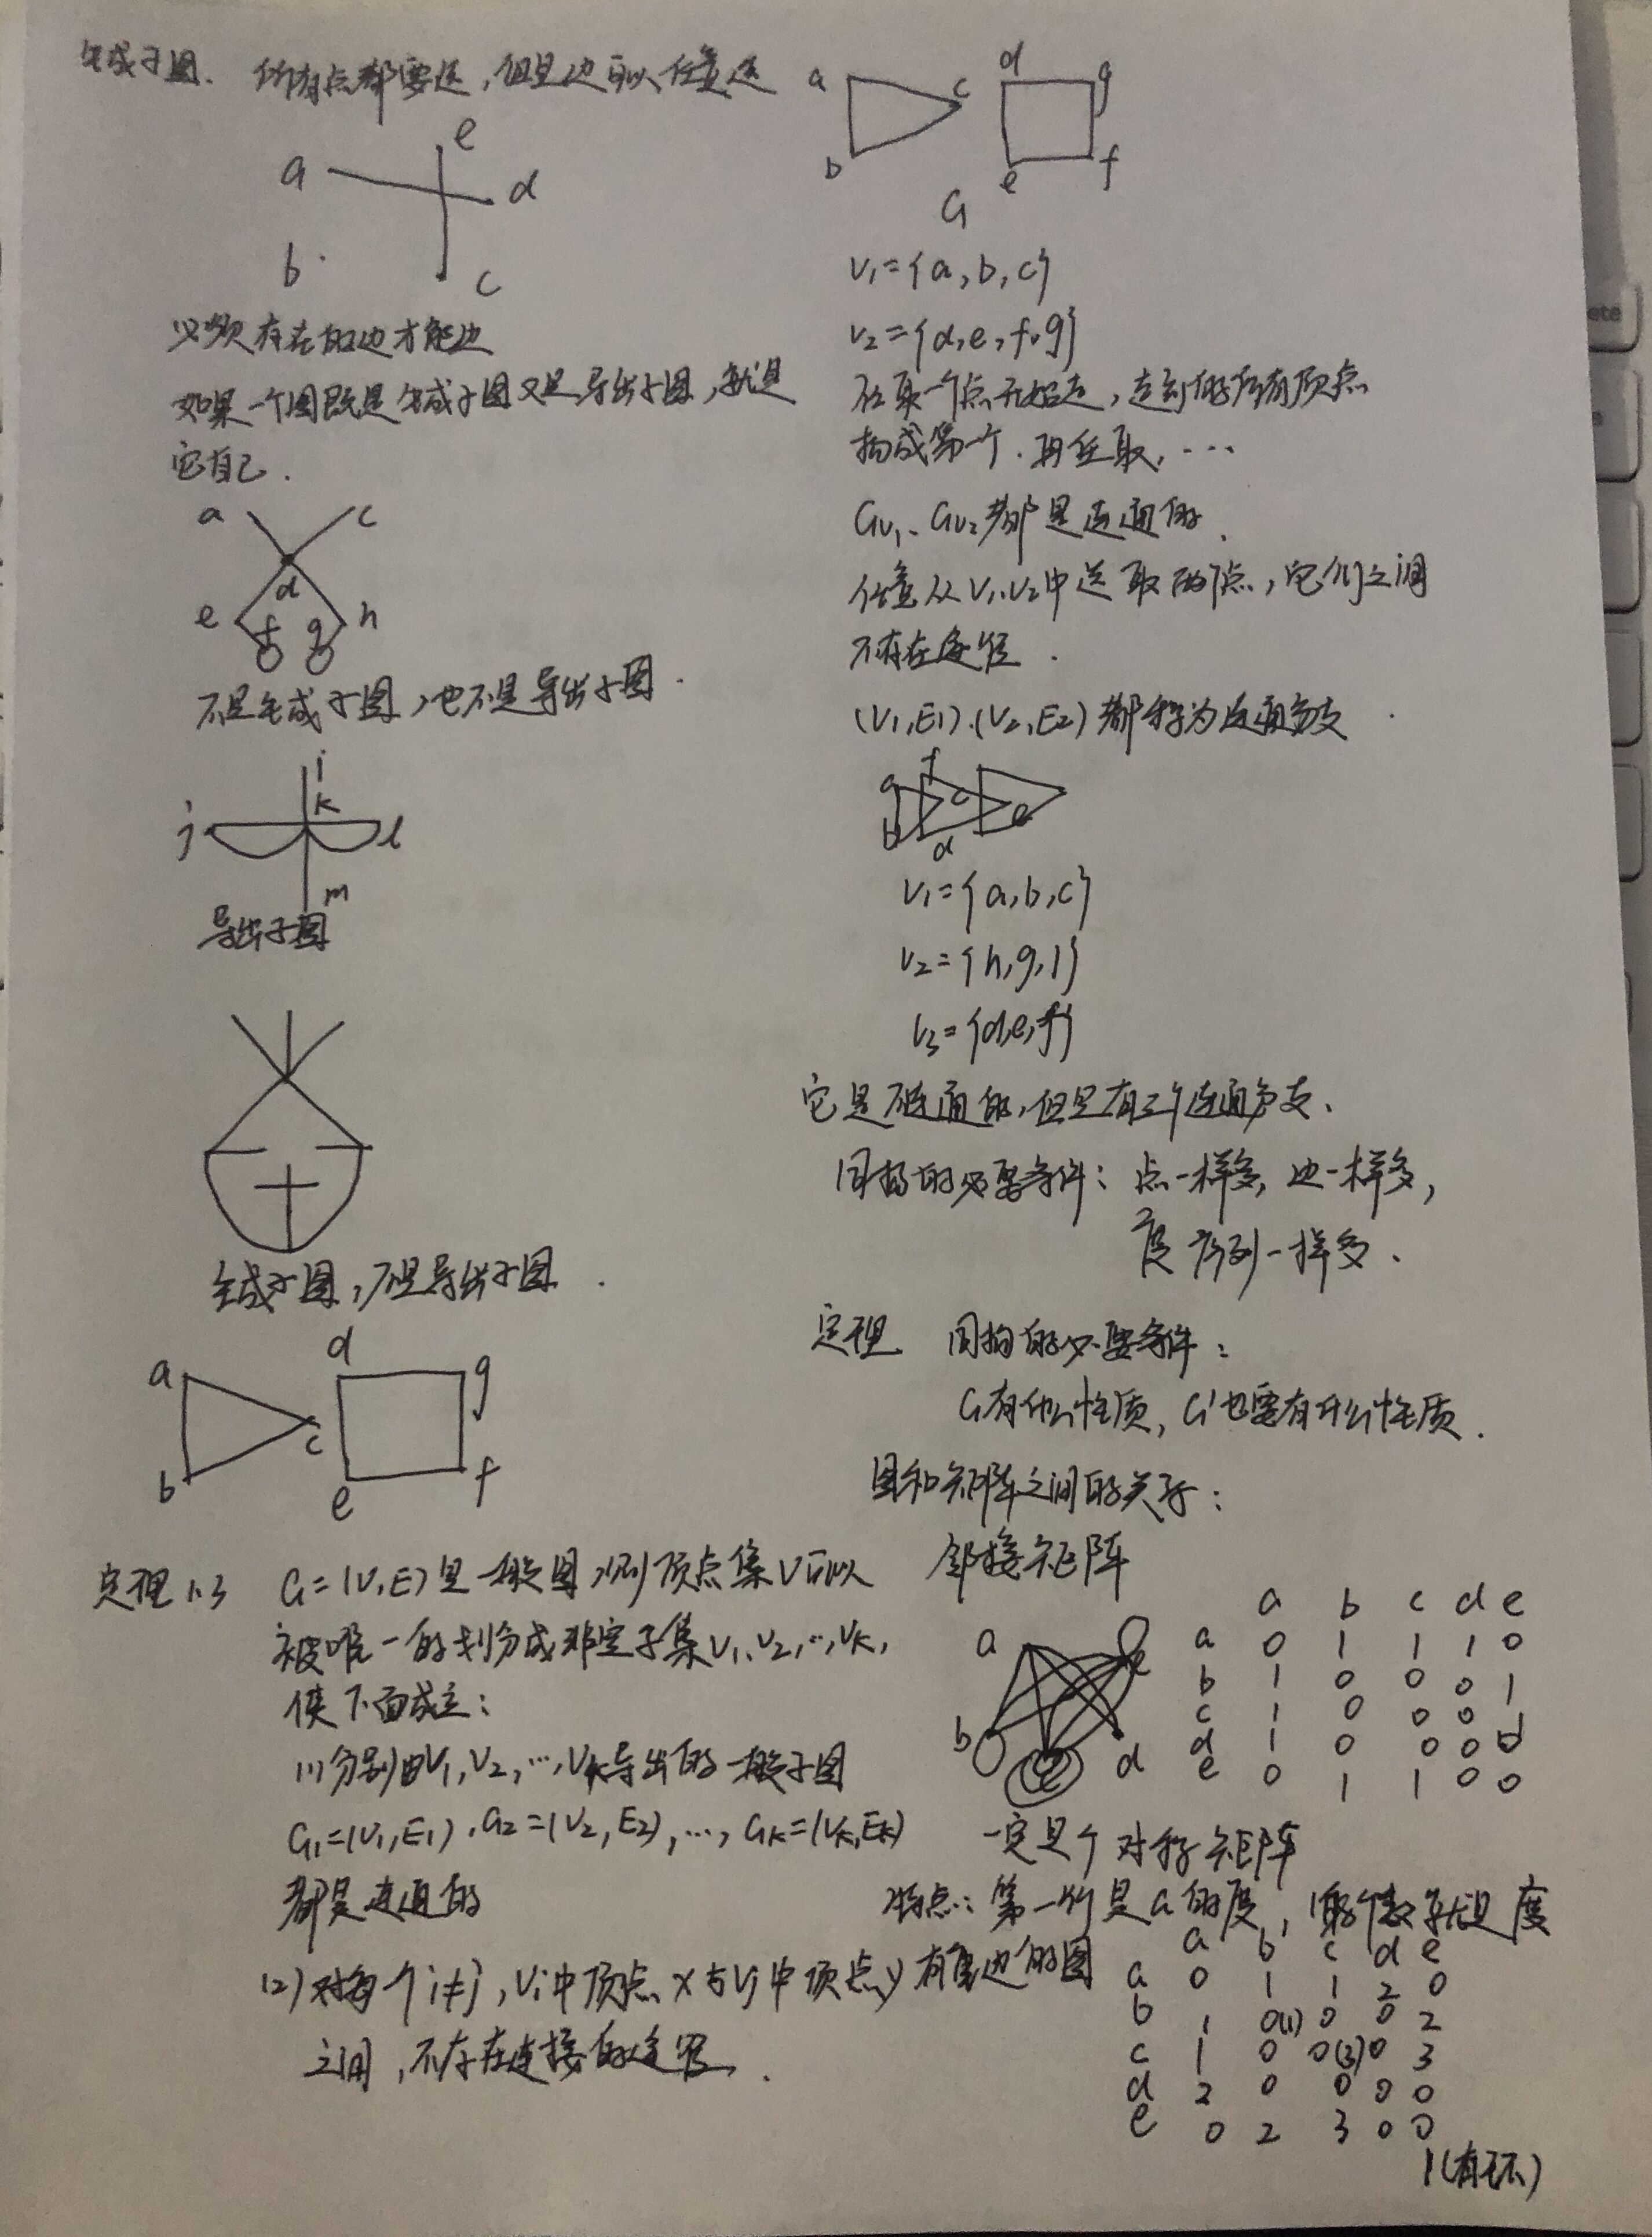 生成子图. 所有点都要选,但是边可以任意选
a e d
b c
必须存在的边才能边
如果一个图既是生成子图又是导出子图,就是
它自己.
a c
d
e f g h
不是生成子图,也不是导出子图.
i
j k l
m
导出子图
生成子图,不是导出子图.
a d g
b c e f
定理1.3 G=(V,E)是一般图,则顶点集V可以
被唯一的划分成非空子集V1,V2,…,Vk,
使下面成立:
(1)分别由V1,V2,…,Vk导出的一般子图
G1=(V1,E1),G2=(V2,E2),…,Gk=(Vk,Ek)
都是连通的
(2)对每个i≠j,Vi中顶点x与Vj中顶点y
之间,不存在连接的途径.
a c d g
b e f
G
V1={a,b,c}
V2={d,e,f,g}
任取一个点开始走,走到的所有顶点
构成第一个.再任取,…
GV1、GV2都是连通的.
任意从V1,V2中选取两点,它们之间
不存在途径.
(V1,E1).(V2,E2)都称为连通分支.
a f c
b d e
V1={a,b,c}
V2={h,g,i}
V3={d,e,f}
它是不连通的,但是有三个连通分支、
同构的必要条件:点一样多,边一样多,
度序列一样多.
定理 同构的必要条件:
G有什么性质,G'也要有什么性质.
图和矩阵之间的关系:
邻接矩阵
a e
b c d
a b c d e
a 0 1 1 1 0
b 1 0 0 0 1
c 1 0 0 0 1
d 1 0 0 0 0
e 0 1 1 0 0
一定是个对称矩阵
特点:第一行是a的度,1的个数就是度
有重边的图
a b c d e
a 0 1 1 2 0
b 1 0(1) 0 0 2
c 1 0 0(3) 0 3
d 2 0 0 0 0
e 0 2 3 0 0
1(有环)